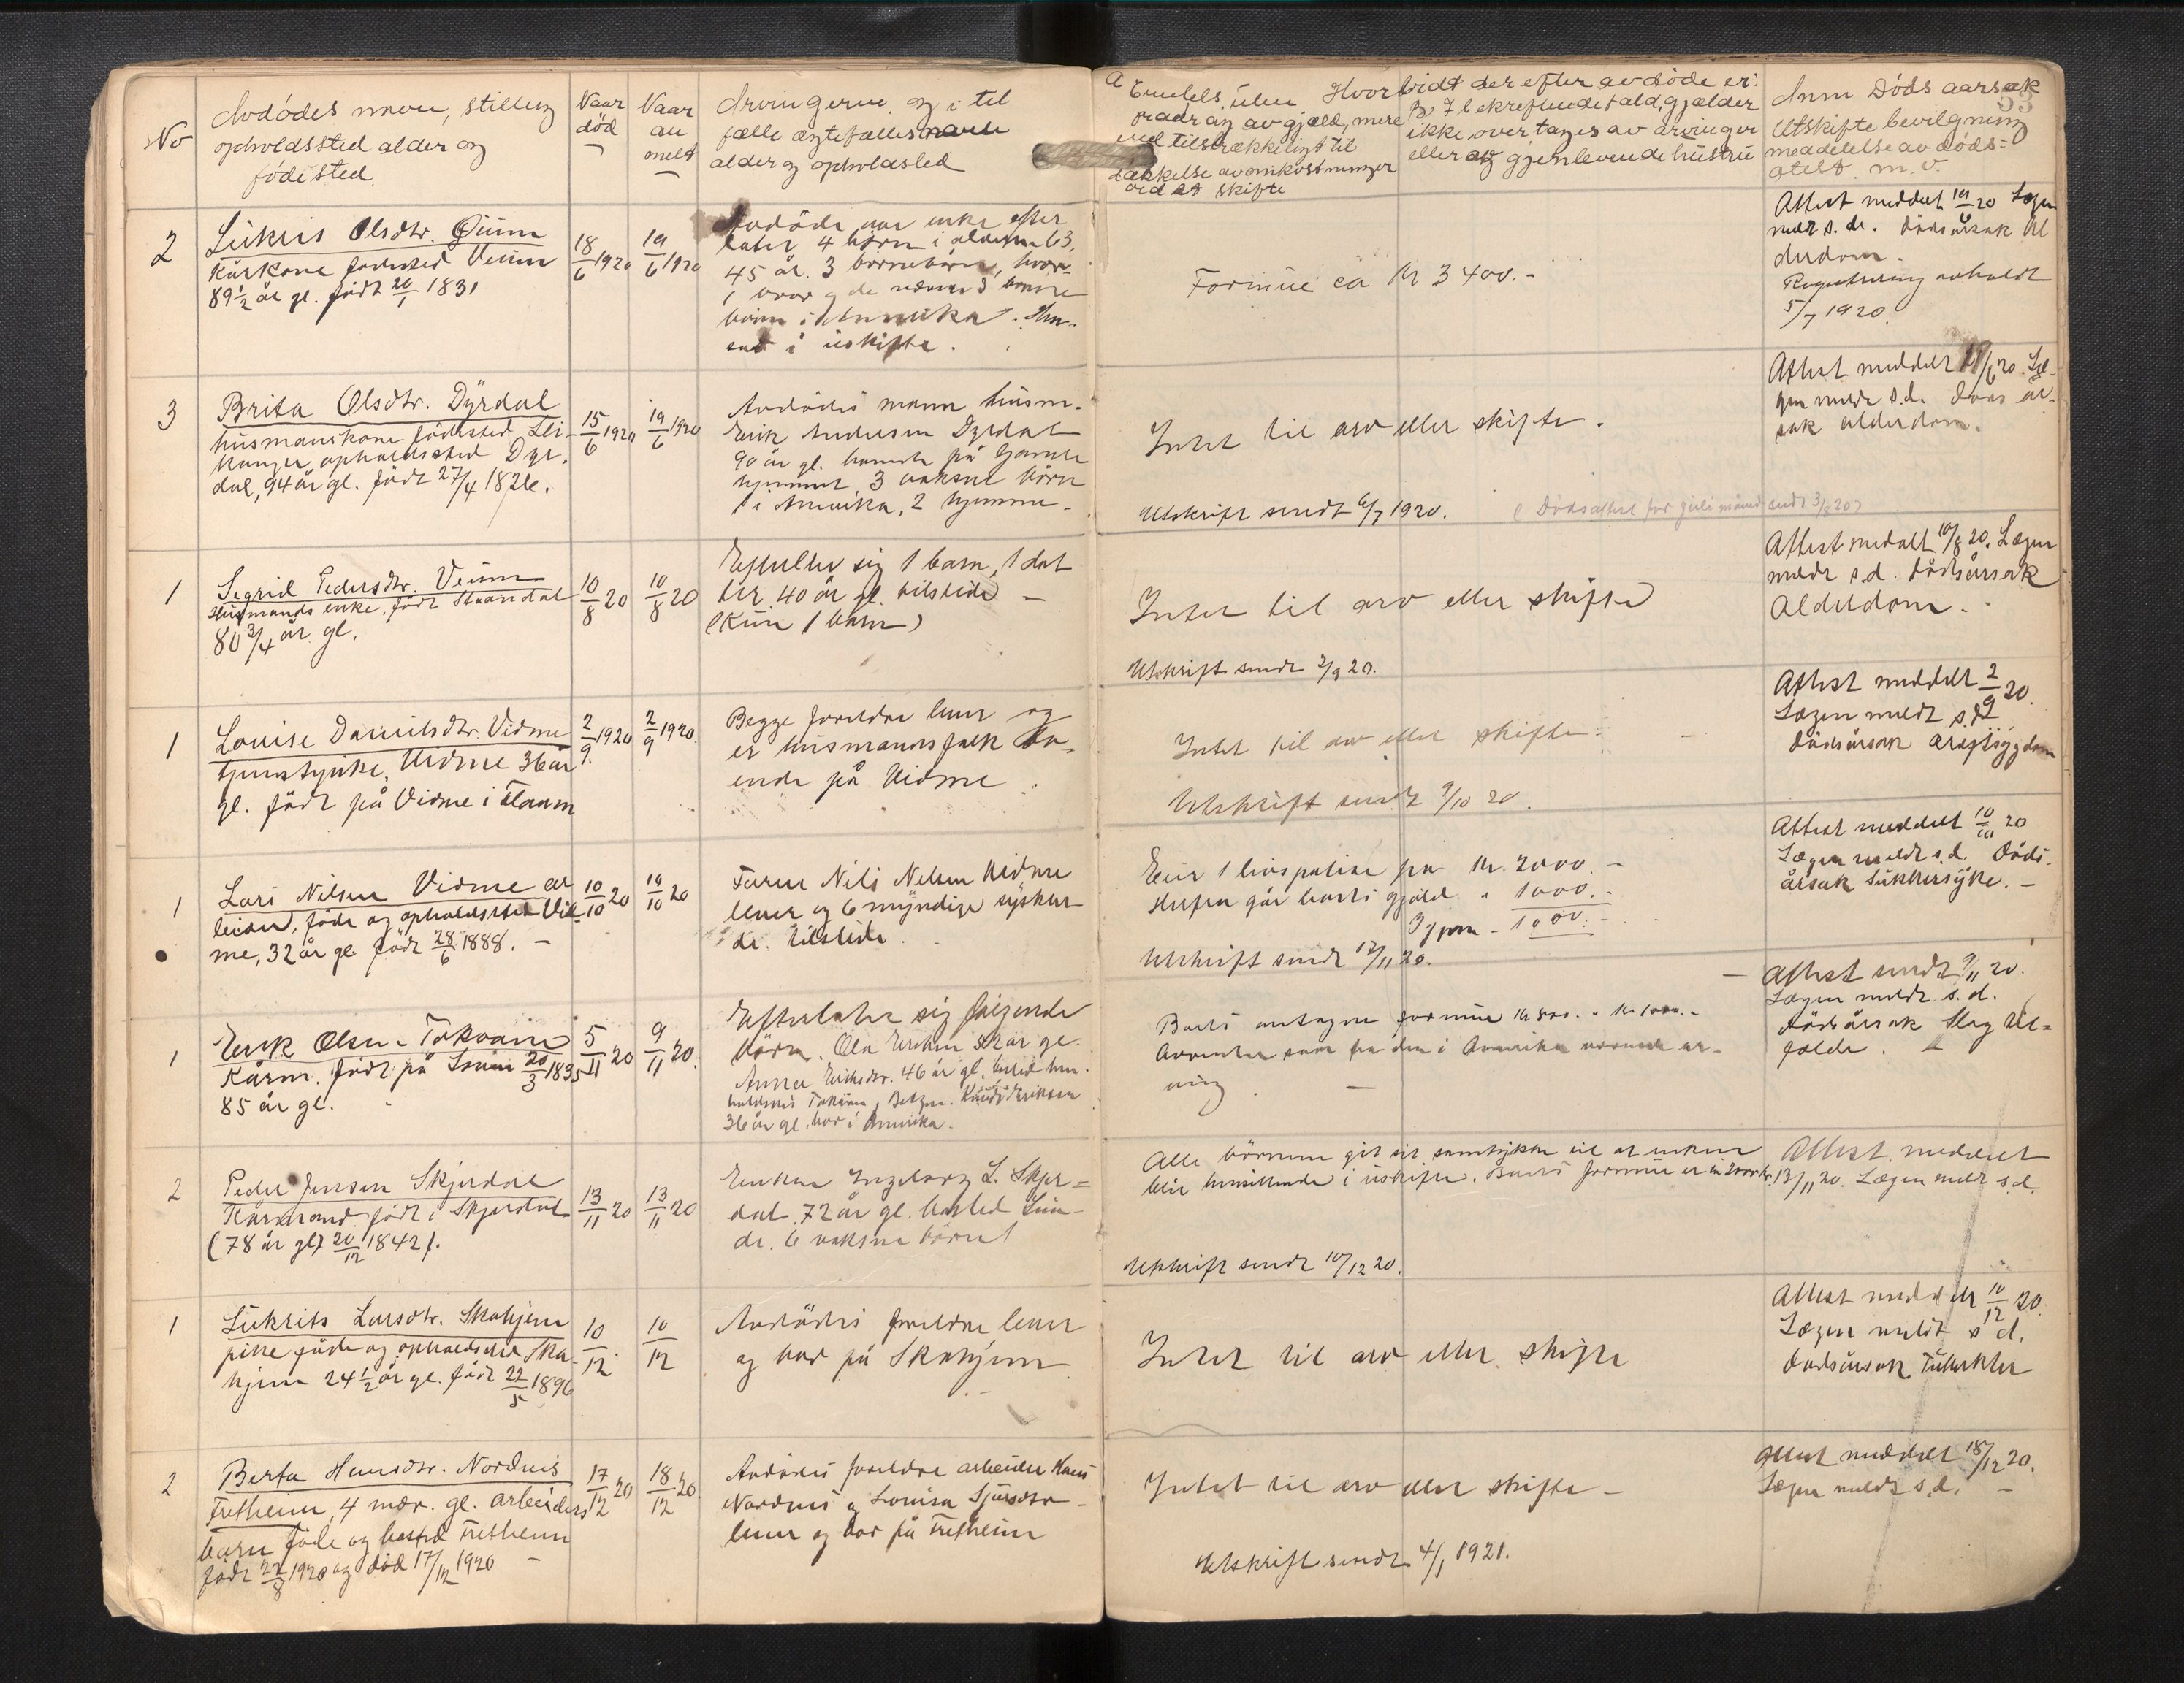 No
Avdödes navn, stilling
opholdssted alder og
födested.
Naar
död
Naar
an
meldt
Arvingerne og i til
fælle ægtefælles navn
alder og opholdsted
A
Hvorvidt der efter avdöde er:
fradrag av gjæld, mere
end tilstrækkeligt til
dækkelse av omkostninger
ved et skifte
B, I bekreftende fald, gjælder
ikke overtages av arvinger
eller av gjenlevende hustru
Anm Döds aarsak
53
Utskifte bevilgning
meddelelse av döds=
atest. m. v.
2
Sükris Olsdtr.
Kårkone födested Veum
89 1/2 år gl. födt 20/1 1831
18/6 1920
19/6 1920
Avdöde var enke efter
later 4 börn i alderen 63,
45 år. 3 börnebörn, hvor
1 bror og de nævnte 3 börne
börn i Amerika. Hun
sad i uskifte.
Formue ca Kr 3400.-
Attest meddelt 19/6 20 Lægen
meldt s. d. Dödsårsak Al
derdom.
Registrering avholdt
5/7 1920
3
Brita Olsdtr. Dÿrdal
husmanskone födested Lei-
kanger, opholdssted Dyr-
dal, 94 år gl. födt 27/4 1826.
15/6 1920
19/6 1920
Avdödes mann husm.
Erik Andersen Dyrdal
90 år gl. på Gamle
hjemmet 3 vaksne börn
1 i Amerika, 2 hjemme.
Intet til arv eller skifte.
Utskrift sendt 6/7 1920.
(Dödsattest for juli måned sendt 3/8 20)
Attest meddelt 19/6 20. Læ-
gen meldt s.d. Döds år-
sak alderdom.
1
Sigrid Pedersdtr. Veum
Husmands enke, födt Staandal
80 3/4 år gl.
10/8 20
10/8 20
Efterlater sig 1 barn, 1 dat
ter 40 år gl. tilstede —
(Kun 1 barn)
Intet til arv eller skifte
Utskrift sendt 2/9 20.
Attest medelt 10/8 20. Lægen
meldt s.d. Dödsårsak
Alderdom.
1
Louise Danielsdtr. Vidme
tjenestpike, Vidme 36 år
gl. födt på Vidme i Flaam
2/9 1920
2/9 1920.
Begge foreldre lever og
er husmandsfolk bo-
ende på Vidme.
Intet til arv eller skifte.
Utskrift sendt 9/10 20.
Attest meddelt 2/9 20.
Lægen meldt s.d.
Dödsårsak
1
Lars Nilsen Vidme ar
beider, föde og opholdssted Vid-
me, 32 år gl. födt 28/6 1888. —
10/10 20
10/10 20
Faren Nils Nelsen Vidme
lever og 6 myndige sÿsken-
de. tilstede.
Eier 1 livspolise på Kr. 2000. —
Herfra går bort i gjæld " 1000. —
Igjen - 1000. -
Utskrift sendt 12/11 20.
Attest meddelt 10/10 20
Lægen meldt s.d. Döds-
årsak Sukkersÿke. —
1
Erik Olsen Tokvam
Kårm. födt på 20/3 1835
85 år gl.
5/11 20
9/11 20.
Efterlater sig fölgende
börn. Ola Eriksen år gl.
Anna Eriksdtr. 46 år gl, bosted
Tokvam, Knut Eriksen
36 år gl. bor i Amerika.
Boets antagne formue Kr 800. - Kr 1000. -
Avventer svar fra den i Amerika værende ar-
ving —
Attest sendt 9/11 20.
Lægen meldt s. d.
Dödsårsak Slag til=
fælde.
2
Peder Jensen Skjerdal
Kårmand. födt i Skjerdal
(78 år gl) 20/12 1842).
13/11 20
13/11 20
Enken Ingeborg L. Skjer=
dal. 72 år gl. bosted
6 vaksne börn
Alle börnene git sit samtykke til at enken
blir hensittende i uskifte. Boets formue er ca 2000 kr.
Utskrift sendt 10/12 20.
Attest meddelt
13/11 20. Lægen meldt s.d.
1
Sükrits Larsdtr. Skahjem
pike föde og opholdssted Ska-
hjem 24 1/2 år gl. födt 22/5 1896
10/12
10/12
Avdödes foreldre lever
og bor på Skahjem
Intet til arv eller skifte
Attest meddelt 10/12 20.
Lægen meldt s d.
Dödsårsak Tuberkler
2
Berta Hansdtr. Nordnes
Fretheim, 4 mdr. gl. arbeiders
barn föde og bosted Fretheim
födt 22/8 1920 og död 17/12 1920 —
17/12 20
18/12 20
Avdödes foreldre arbeider Hans
Nordnes og Lovisa Sjursdtr
lever og bor på Fretheim
Intet til arv eller skifte —
Utskrift sendt 4/1 1921.
Attest meddelt 18/12 20.
Lægen meldt s.d. —